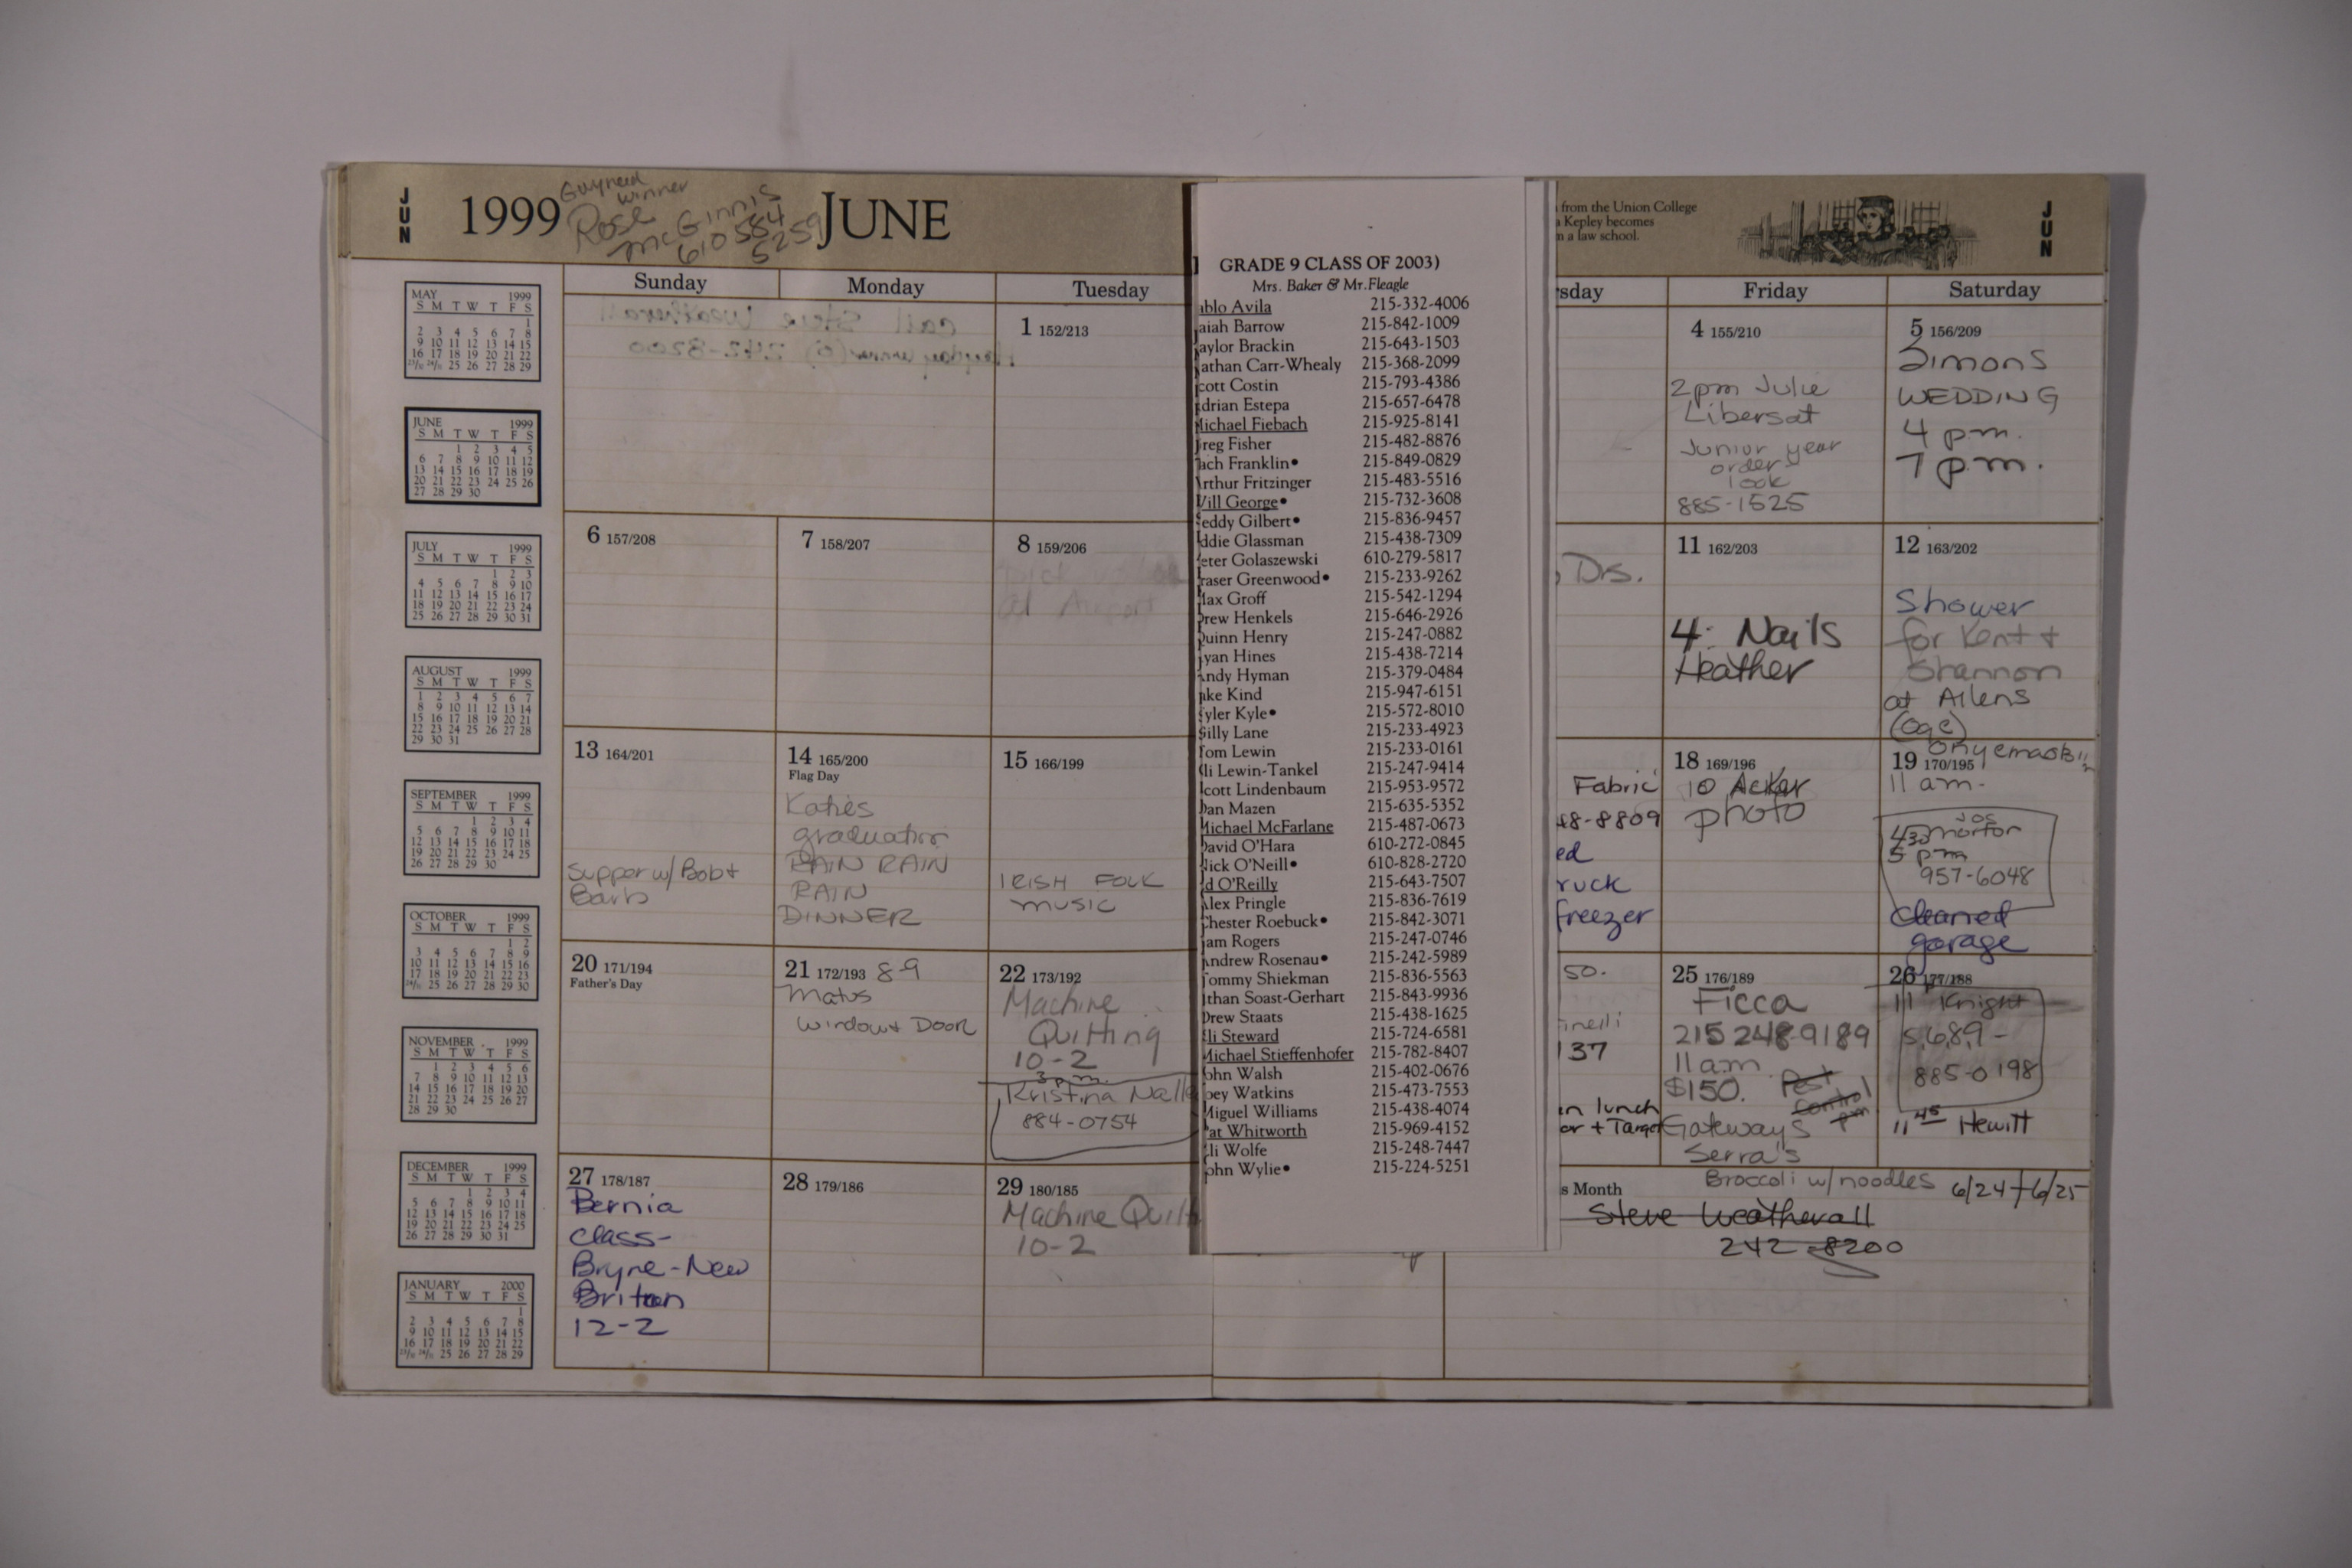 JUN
1999
Gwyned
winner
Rose
McGinnis
610 584
5259
JUNE
from the Union College
Kepley becomes
a law school.
JUN
Sunday Monday Tuesday
sday Friday Saturday
MAY 1999
S M T W T F S
1
2 3 4 5 6 7 8
9 10 11 12 13 14 15
16 17 18 19 20 21 22
23/30 24/31 25 26 27 28 29
JUNE 1999
S M T W T F S
1 2 3 4 5
6 7 8 9 10 11 12
13 14 15 16 17 18 19
20 21 22 23 24 25 26
27 28 29 30
JULY 1999
S M T W T F S
1 2 3
4 5 6 7 8 9 10
11 12 13 14 15 16 17
18 19 20 21 22 23 24
25 26 27 28 29 30 31
AUGUST 1999
S M T W T F S
1 2 3 4 5 6 7
8 9 10 11 12 13 14
15 16 17 18 19 20 21
22 23 24 25 26 27 28
29 30 31
SEPTEMBER 1999
S M T W T F S
1 2 3 4
5 6 7 8 9 10 11
12 13 14 15 16 17 18
19 20 21 22 23 24 25
26 27 28 29 30
OCTOBER 1999
S M T W T F S
1 2
3 4 5 6 7 8 9
10 11 12 13 14 15 16
17 18 19 20 21 22 23
24/31 25 26 27 28 29 30
NOVEMBER 1999
S M T W T F S
1 2 3 4 5 6
7 8 9 10 11 12 13
14 15 16 17 18 19 20
21 22 23 24 25 26 27
28 29 30
DECEMBER 1999
S M T W T F S
1 2 3 4
5 6 7 8 9 10 11
12 13 14 15 16 17 18
19 20 21 22 23 24 25
26 27 28 29 30 31
JANUARY 2000
S M T W T F S
1
2 3 4 5 6 7 8
9 10 11 12 13 14 15
16 17 18 19 20 21 22
23/30 24/31 25 26 27 28 29
Call Steve Weatherall
winner (o) 242-8200
1 152/213
6 157/208
7 158/207
8 159/206
Dick
at Airport
13 164/201
Supper w/ Bob +
Barb
14 165/200
Flag Day
Katies
graduation
RAIN RAIN
RAIN
DINNER
15 166/199
IRISH FOLK
MUSIC
20 171/194
Father's Day
21 172/193 8-9
Matus
Window + Door
22 173/192
Machine
Quilting
10-2
3 p.m.
Kristina Nalle
884-0754
27 178/187
Bernia
class-
Bryne-New
Britan
12-2
28 179/186
29 180/185
Machine Quilt
10-2
GRADE 9 CLASS OF 2003)
Mrs. Baker & Mr.Fleagle
ablo Avila 215-332-4006
aiah Barrow 215-842-1009
aylor Brackin 215-643-1503
athan Carr-Whealy 215-368-2099
cott Costin 215-793-4386
drian Estepa 215-657-6478
Michael Fiebach 215-925-8141
reg Fisher 215-482-8876
ach Franklin• 215-849-0829
rthur Fritzinger 215-483-5516
Will George• 215-732-3608
eddy Gilbert• 215-836-9457
ddie Glassman 215-438-7309
eter Golaszewski 610-279-5817
raser Greenwood• 215-233-9262
Max Groff 215-542-1294
Drew Henkels 215-646-2926
Quinn Henry 215-247-0882
yan Hines 215-438-7214
Andy Hyman 215-379-0484
ake Kind 215-947-6151
yler Kyle• 215-572-8010
Billy Lane 215-233-4923
Tom Lewin 215-233-0161
li Lewin-Tankel 215-247-9414
cott Lindenbaum 215-953-9572
Dan Mazen 215-635-5352
Michael McFarlane 215-487-0673
David O'Hara 610-272-0845
Nick O'Neill• 610-828-2720
d O'Reilly 215-643-7507
Alex Pringle 215-836-7619
Chester Roebuck• 215-842-3071
am Rogers 215-247-0746
Andrew Rosenau• 215-242-5989
Tommy Shiekman 215-836-5563
than Soast-Gerhart 215-843-9936
Drew Staats 215-438-1625
li Steward 215-724-6581
Michael Stieffenhofer 215-782-8407
ohn Walsh 215-402-0676
oey Watkins 215-473-7553
Miguel Williams 215-438-4074
at Whitworth 215-969-4152
li Wolfe 215-248-7447
ohn Wylie• 215-224-5251
4 155/210
2pm Julie
Libersat
Junior year
order
look
885-1525
5 156/209
Simons
WEDDING
4 pm.
7 p.m.
Drs.
11 162/203
4: Nails
Heather
12 163/202
Shower
for Kent +
Shannon
at Allens
(Oge)
Onyemaobi
Fabric
48-8809
ed
ruck
freezer
18 169/196
10 Acker
photo
19 170/195
11 am.
Jos
430 Morton
5 pm
957-6048
Cleaned
garage
50.
inelli
137
an lunch
or + Target
25 176/189
Ficca
215 248-9189
11 am
$150. Pest
Control
pm
Gateways
Serra's
26 177/188
111 Knight
5,6,8,9 -
885-0198
11 45 Hewitt
s Month
Broccoli w/ noodles 6/24 + 6/25
Steve Weatherall
242-8200